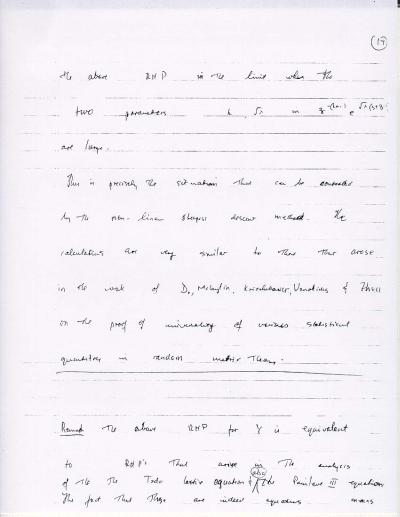 19
the above RHP in the limit when the
two parameters k, √λ in z^-(k+1) e^√λ(z+z^-1)
are large.
This is precisely the situation that can be controlled
by the non-linear steepest descent method. The
calculations are very similar to those that arose
in the work of D., McLaughlin, Kriecherbauer, Venakides & Zhou
on the proof of universality of various statistical
quantities in random matrix theory.
Remark The above RHP for Y is equivalent
to RHP's that arise in the analysis
of the the Toda lattice equation & also the Painlevé III equation
The fact that these are indeed equations means